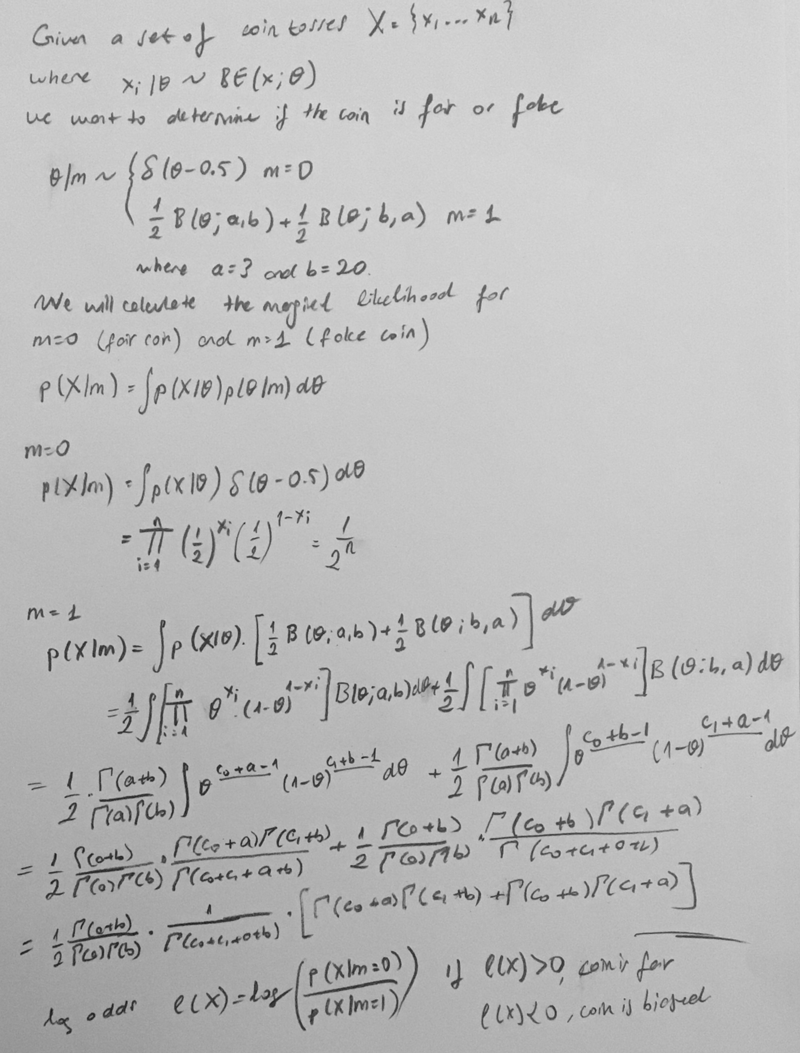 Given a set of coin tosses X = {x₁ ... xₙ}
where xᵢ|θ ~ BE(x; θ)
we want to determine if the coin is fair or fake
θ|m ~ { δ(θ-0.5) m=0
1/2 B(θ; a,b) + 1/2 B(θ; b,a) m=1
where a=3 and b=20.
We will calculate the marginal likelihood for
m=0 (fair coin) and m=1 (fake coin)
p(X|m) = ∫p(X|θ)p(θ|m)dθ
m=0
p(X|m) = ∫p(X|θ) δ(θ-0.5)dθ
= ∏ᵢ₌₁ⁿ (1/2)^xᵢ (1/2)^(1-xᵢ) = 1/2ⁿ
m=1
p(X|m) = ∫p(X|θ).[1/2 B(θ; a,b) + 1/2 B(θ; b,a)] dθ
= 1/2 ∫[∏ᵢ₌₁ⁿ θ^xᵢ.(1-θ)^(1-xᵢ)] B(θ; a,b)dθ + 1/2 ∫[∏ᵢ₌₁ⁿ θ^xᵢ (1-θ)^(1-xᵢ)] B(θ: b,a)dθ
= 1/2 . Γ(a+b)/Γ(a)Γ(b) ∫θ^(c₀+a-1) (1-θ)^(c₁+b-1) dθ + 1/2 Γ(a+b)/Γ(a)Γ(b) ∫θ^(c₀+b-1) (1-θ)^(c₁+a-1) dθ
= 1/2 Γ(a+b)/Γ(a)Γ(b) . Γ(c₀+a)Γ(c₁+b)/Γ(c₀+c₁+a+b) + 1/2 Γ(a+b)/Γ(a)Γ(b) . Γ(c₀+b)Γ(c₁+a)/Γ(c₀+c₁+a+b)
= 1/2 Γ(a+b)/Γ(a)Γ(b) . 1/Γ(c₀+c₁+a+b) . [Γ(c₀+a)Γ(c₁+b) + Γ(c₀+b)Γ(c₁+a)]
log odds ℓ(X) = log(p(X|m=0)/p(X|m=1)) if ℓ(X)>0, coin is fair
ℓ(X)<0, coin is biased